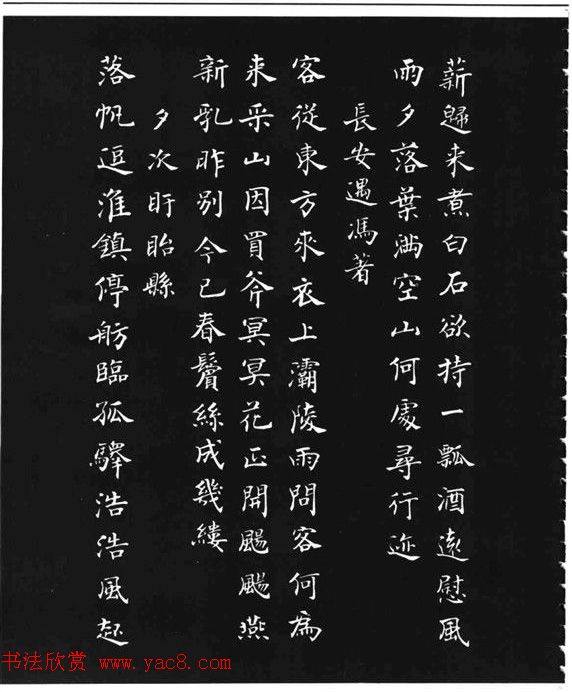 薪歸来煮白石欲持一瓢酒遠慰風
雨夕落葉滿空山何處尋行迹
長安遇馮著
客從東方來衣上灞陵雨問客何為
来采山因買斧冥冥花正開颺颺燕
新乳昨別今已春鬢絲成幾縷
夕次盱眙縣
落帆逗淮鎮停舫臨孤驛浩浩風起
书法欣赏 www.yac8.com